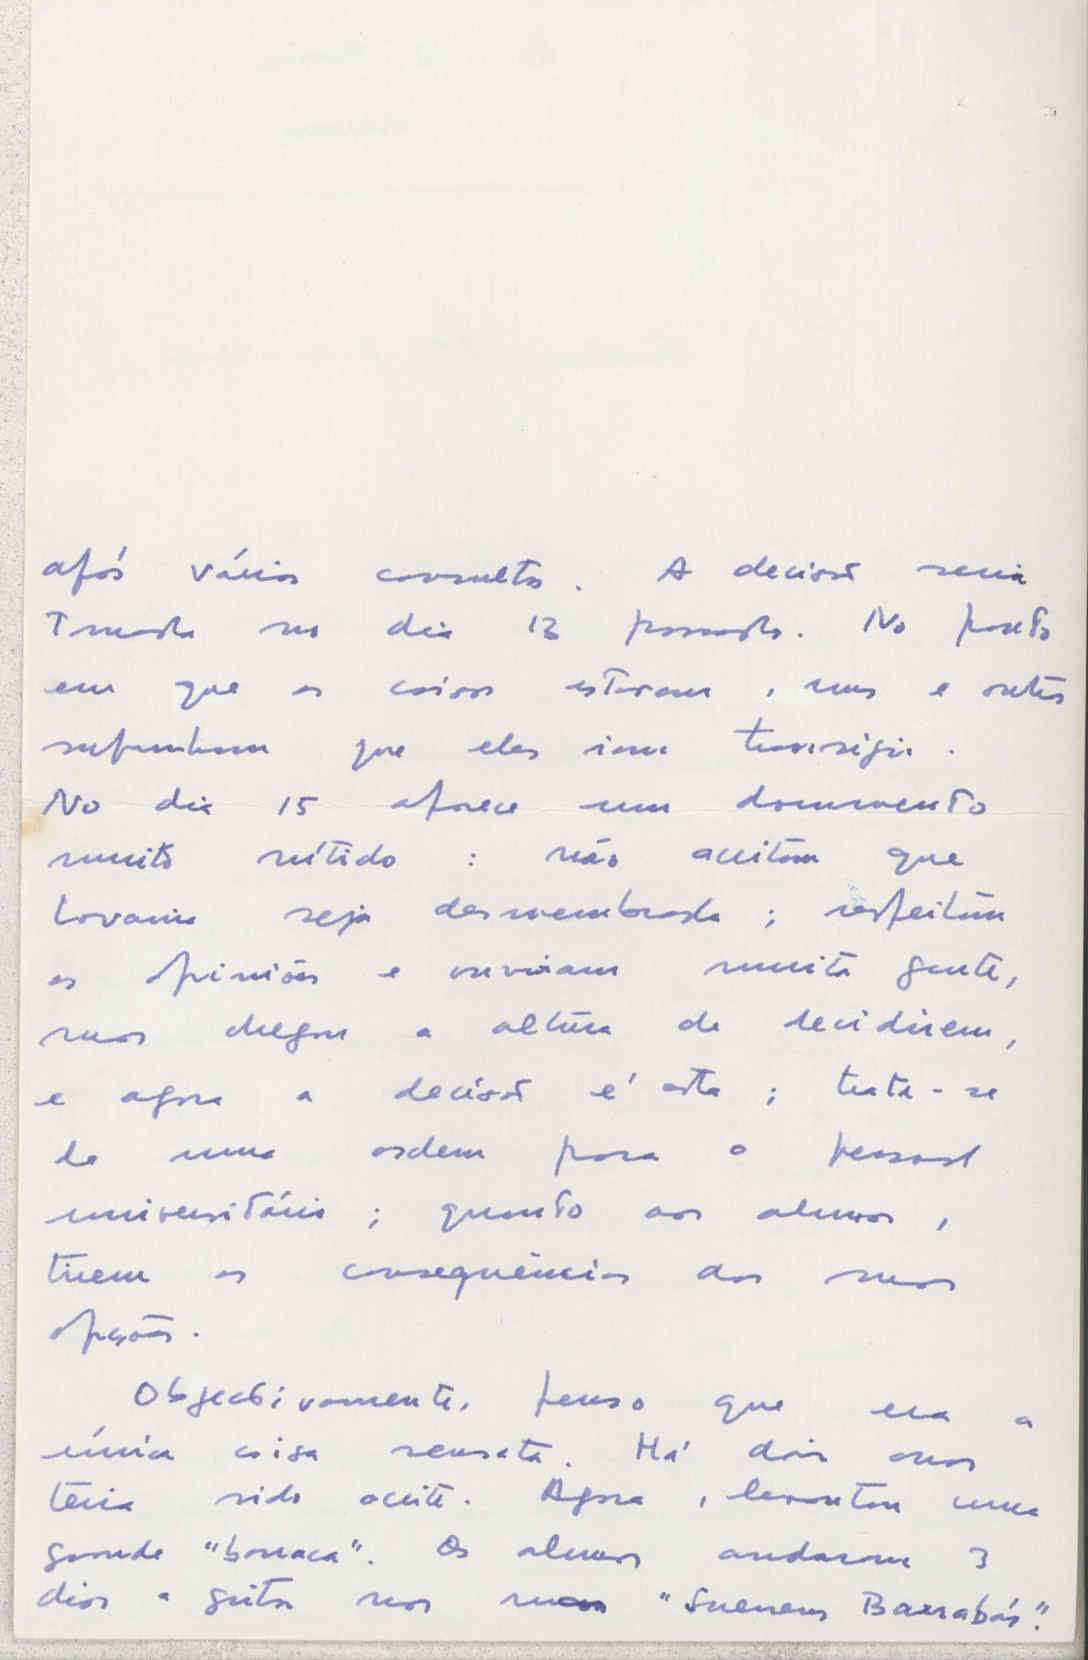 após várias consultas. A decisão seria
Tomada no dia 13 passado. No ponto
em que as coisas estavam, uns e outros
supunham que eles iam transigir.
No dia 15 aparece um documento
muito nítido: não aceitam que
Lovaina seja desmembrada; respeitam
as opiniões e ouviram muita gente,
mas chegou a altura de decidirem,
e agora a decisão é esta; trata-se
de uma ordem para o pessoal
universitário; quanto aos alunos,
tirem as consequências das suas
opções.
Objectivamente, penso que era a
única coisa sensata. Há dois anos
teria sido aceite. Agora, levantou uma
grande "barraca". Os alunos andaram 3
dias a gritar nas ruas "Suenens Barrabás".